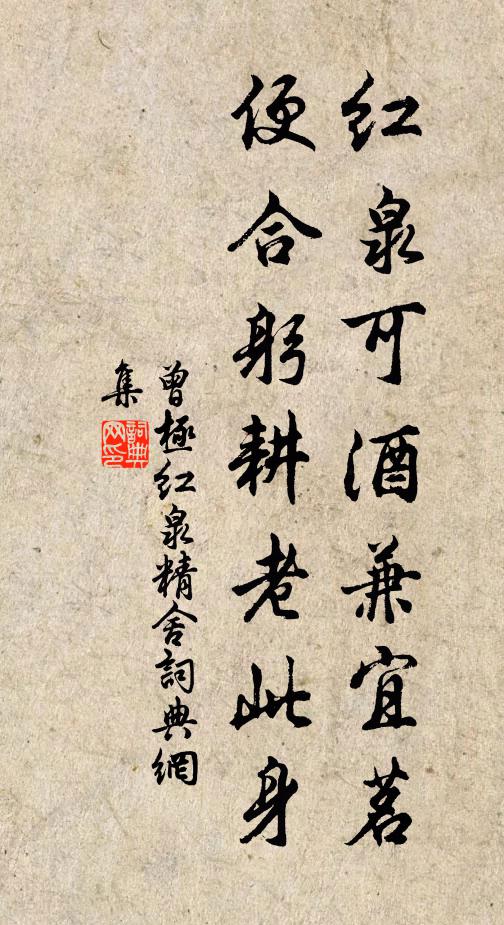 红泉可酒兼宜茗
便合躬耕老此身
曾極红泉精舍詞典網
集
詞典
网印